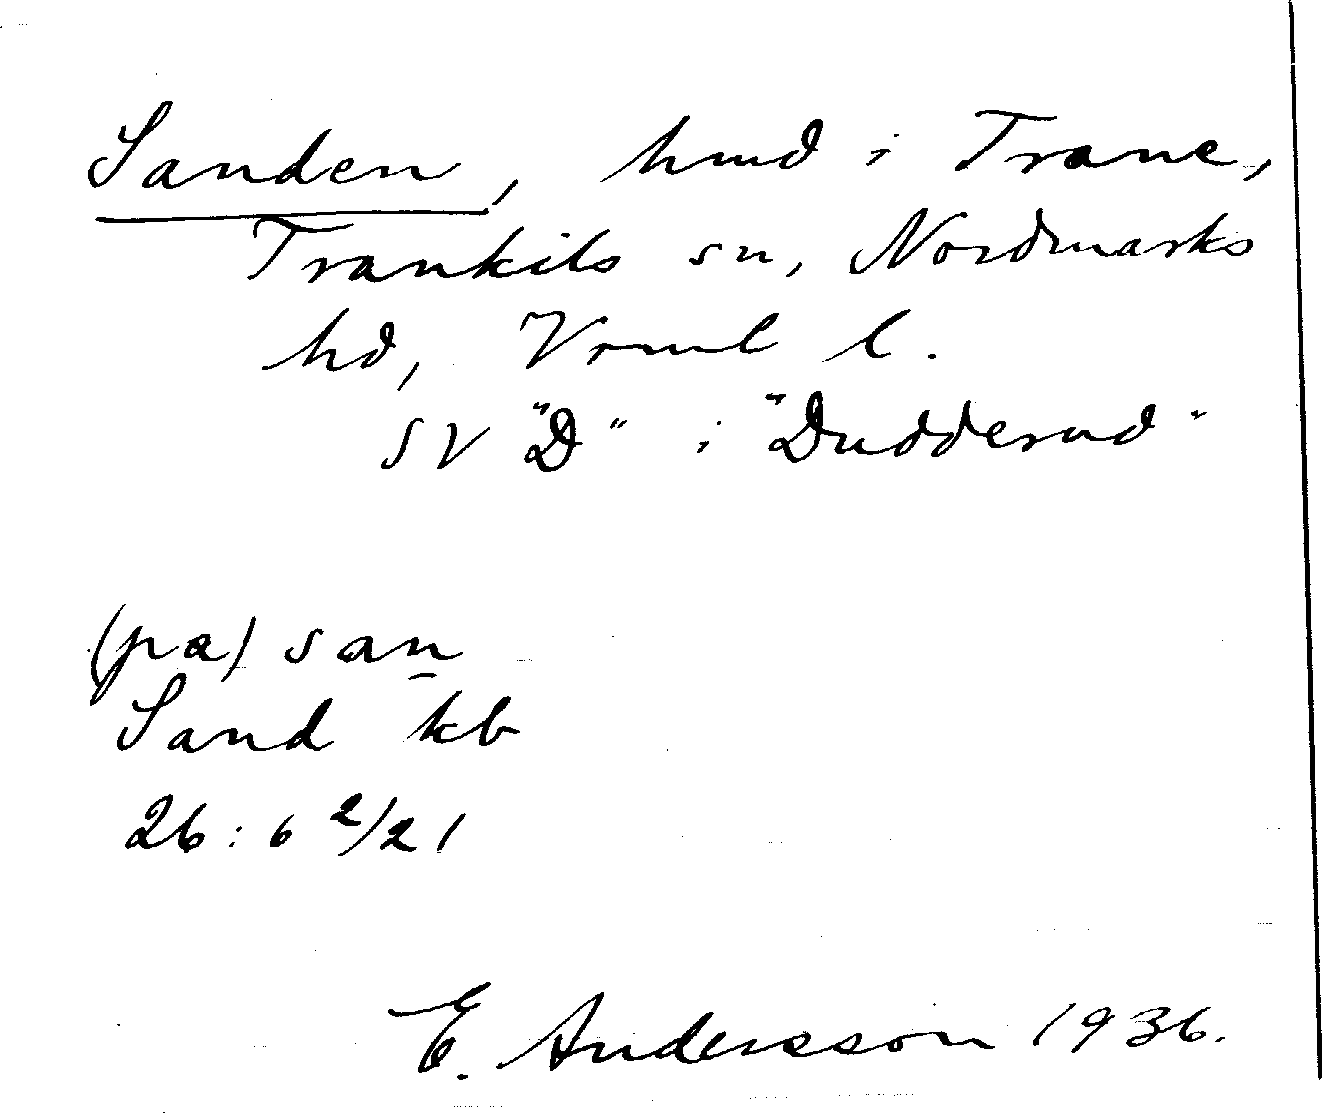 Sanden, hmd i Trane,
Trankils sn, Nordmarks
hd, Vrml l.
SV "D" i "Dudderud"
(pa) san
Sand kb
26:6 2/21
E. Andersson 1936.